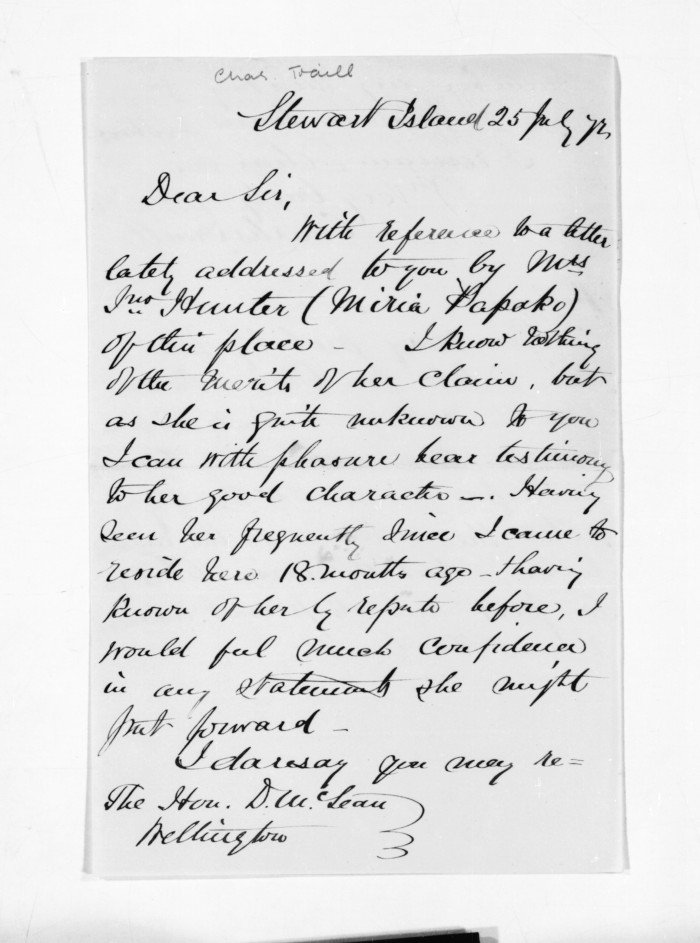 Chas. Traill
Stewart Island 25 July 72
Dear Sir,
With reference to a letter
lately addressed to you by Mrs
Jno. Hunter (Miria Papako)
of this place - I know nothing
of the merits of her claim, but
as she is quite unknown to you
I can with pleasure bear testimony
to her good character -. Having
seen her frequently since I came to
reside here 18 months ago - & having
known of her by repute before, I
would feel much confidence
in any statements she might
put forward -
I daresay you may re=
The Hon. D. McLean
Wellington